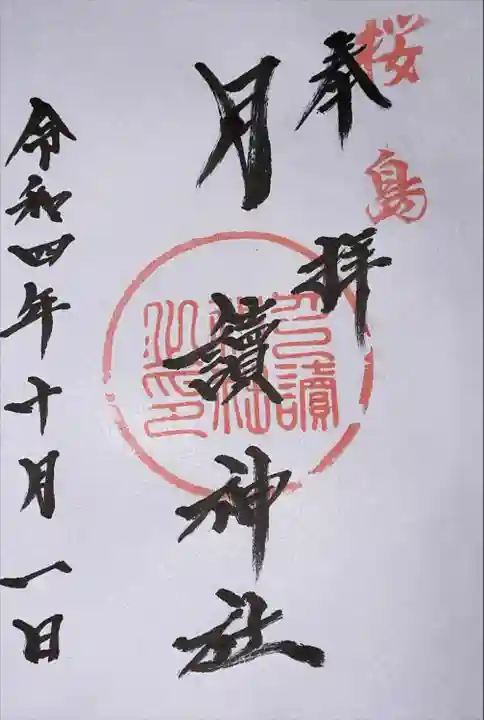 桜島
奉拝
月讀神社
月讀
神社
之印
令和四年十月一日